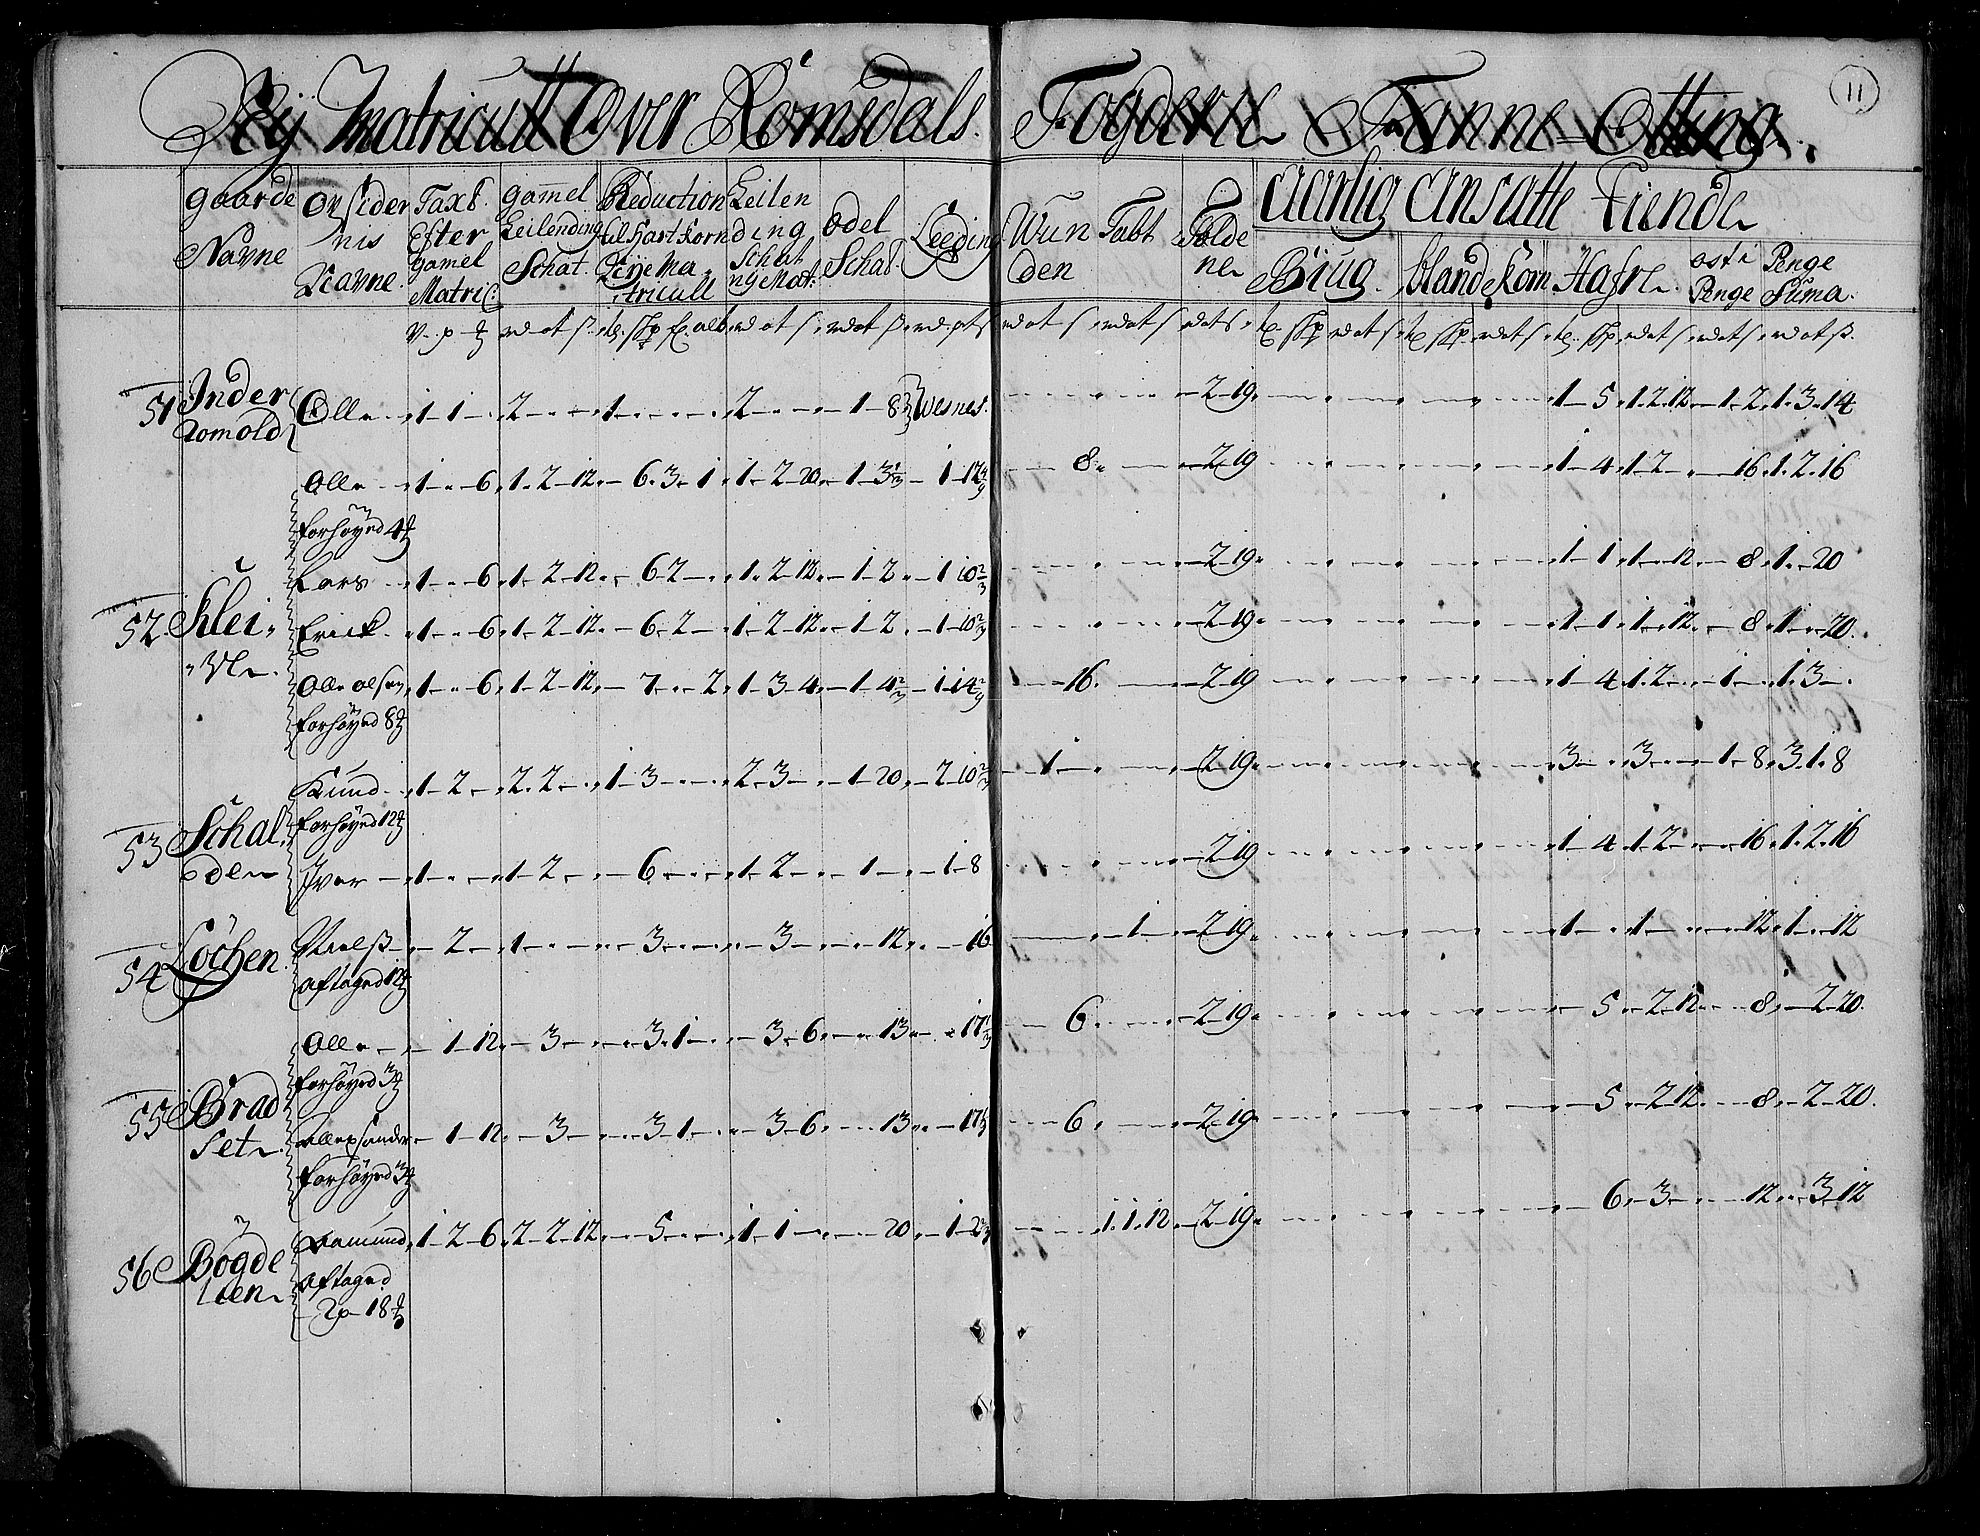 11
Nÿ Matricull Over Romsdals Fogderie Fanne Otting.
gaarde Navne
onsider nis Navne
Taxt Efter gamel Matric:
gamel Leilending Schat
Reduction til Hart Korn Nÿe Matricull
Leilending Schat ny Mat:
Odel Schat
Leeding
Wunden
Tabt
Tolde ne
Aarlig Ansatte Tiende
Biug
blande Korn
Hafre
oste Penge
Penge Suma
51 Inder Romold Olle 1 1 2 1 2 1 8 Wesnes 2 19 1 5 1 2 12 1 2 1 3 14
Olle 1 6 1 2 12 6 3 1 1 2 20 1 3 1/3 1 12 4/9 8 2 19 1 4 1 2 16 1 2 16
forhøyed 4
Lars 1 6 1 2 12 6 2 1 2 12 1 2 1 10 2/3 2 19 1 1 1 12 8 1 20
52 Klei Erick 1 6 1 2 12 6 2 1 2 12 1 2 1 10 2/3 2 19 1 1 1 12 8 1 20
ve Olle olsen 1 6 1 2 12 7 2 1 3 4 1 4 2/3 1 14 2/9 16 2 19 1 4 1 2 1 1 3
forhøyed 8
Knud 1 2 2 2 1 3 2 3 1 20 2 10 2/3 1 2 19 3 3 1 8 3 1 8
53 Schal forhøyed 12
den Iver 1 1 2 6 1 2 1 1 8 2 19 1 4 1 2 16 1 2 16
54 Löchen Nielß 2 1 3 3 12 16 1 2 19 1 1 12 1 12
aftaged 12
Olle 1 12 3 3 1 3 6 13 17 1/3 6 2 19 5 2 12 8 2 20
forhøyed 3
55 Brad set 1 12 3 3 1 3 6 13 17 1/3 6 2 19 5 2 12 8 2 20
forhøyed 3
56 Bögde lien Aamund 1 2 6 2 2 12 5 1 1 20 1 2 2/3 1 1 12 2 19 6 3 12 3 12
aftaged
2p 18